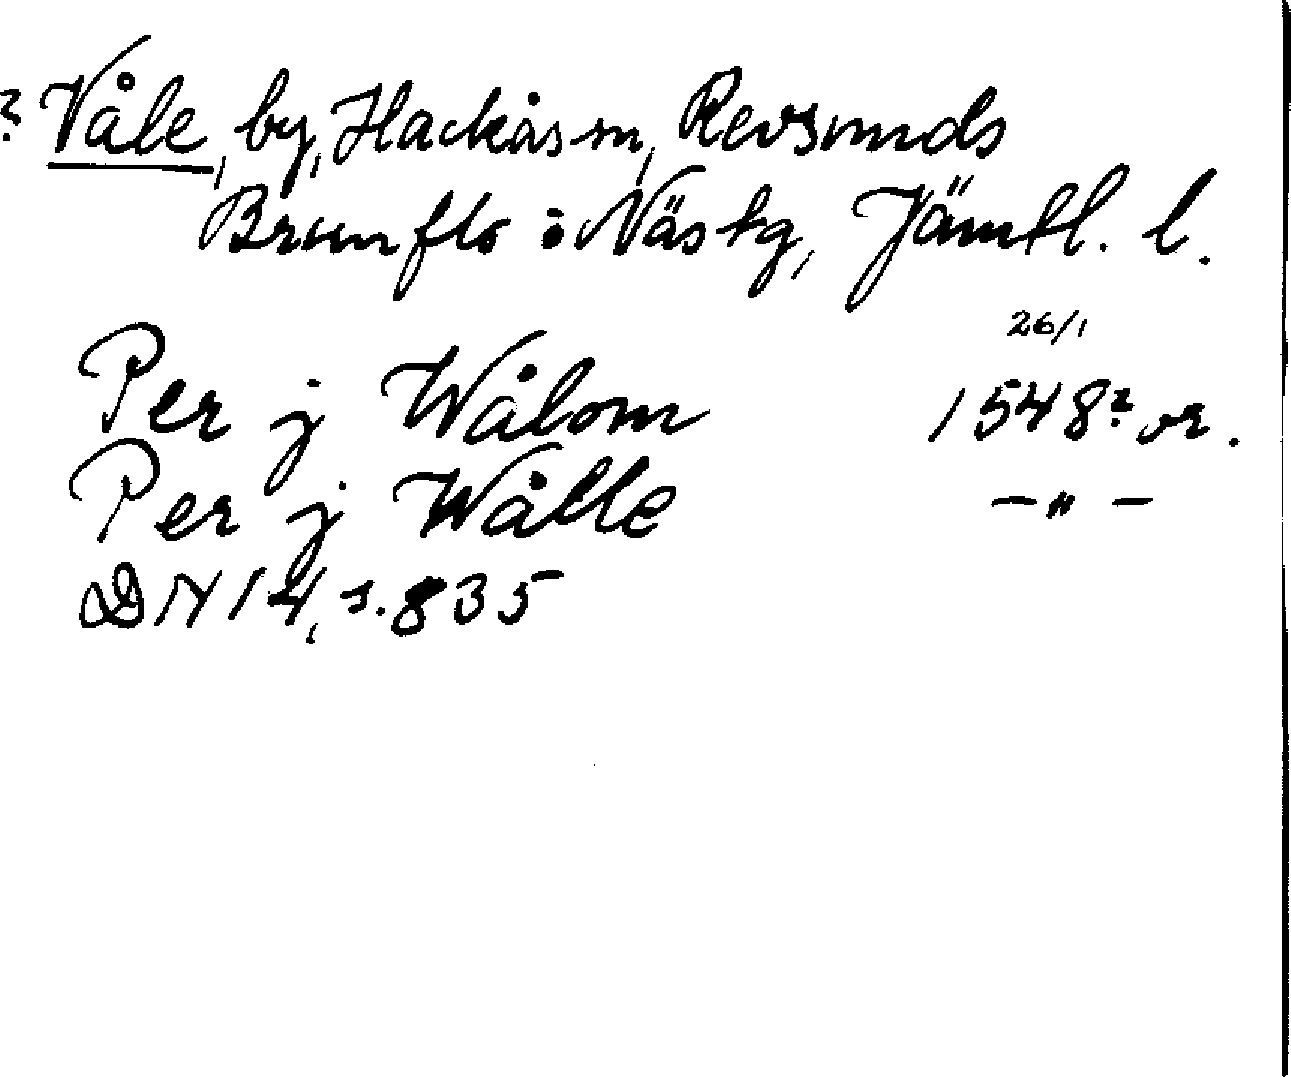 ? Våle, by, Hackås sn, Revsunds
Brunflo o Näs tg, Jämtl. l.
26/1
Per j Wålom 1548? or.
Per j Wålle -"-
DN 14, s. 835